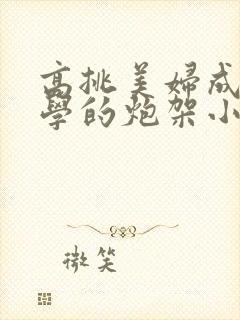 高挑美婦成
學的炮架小
微笑